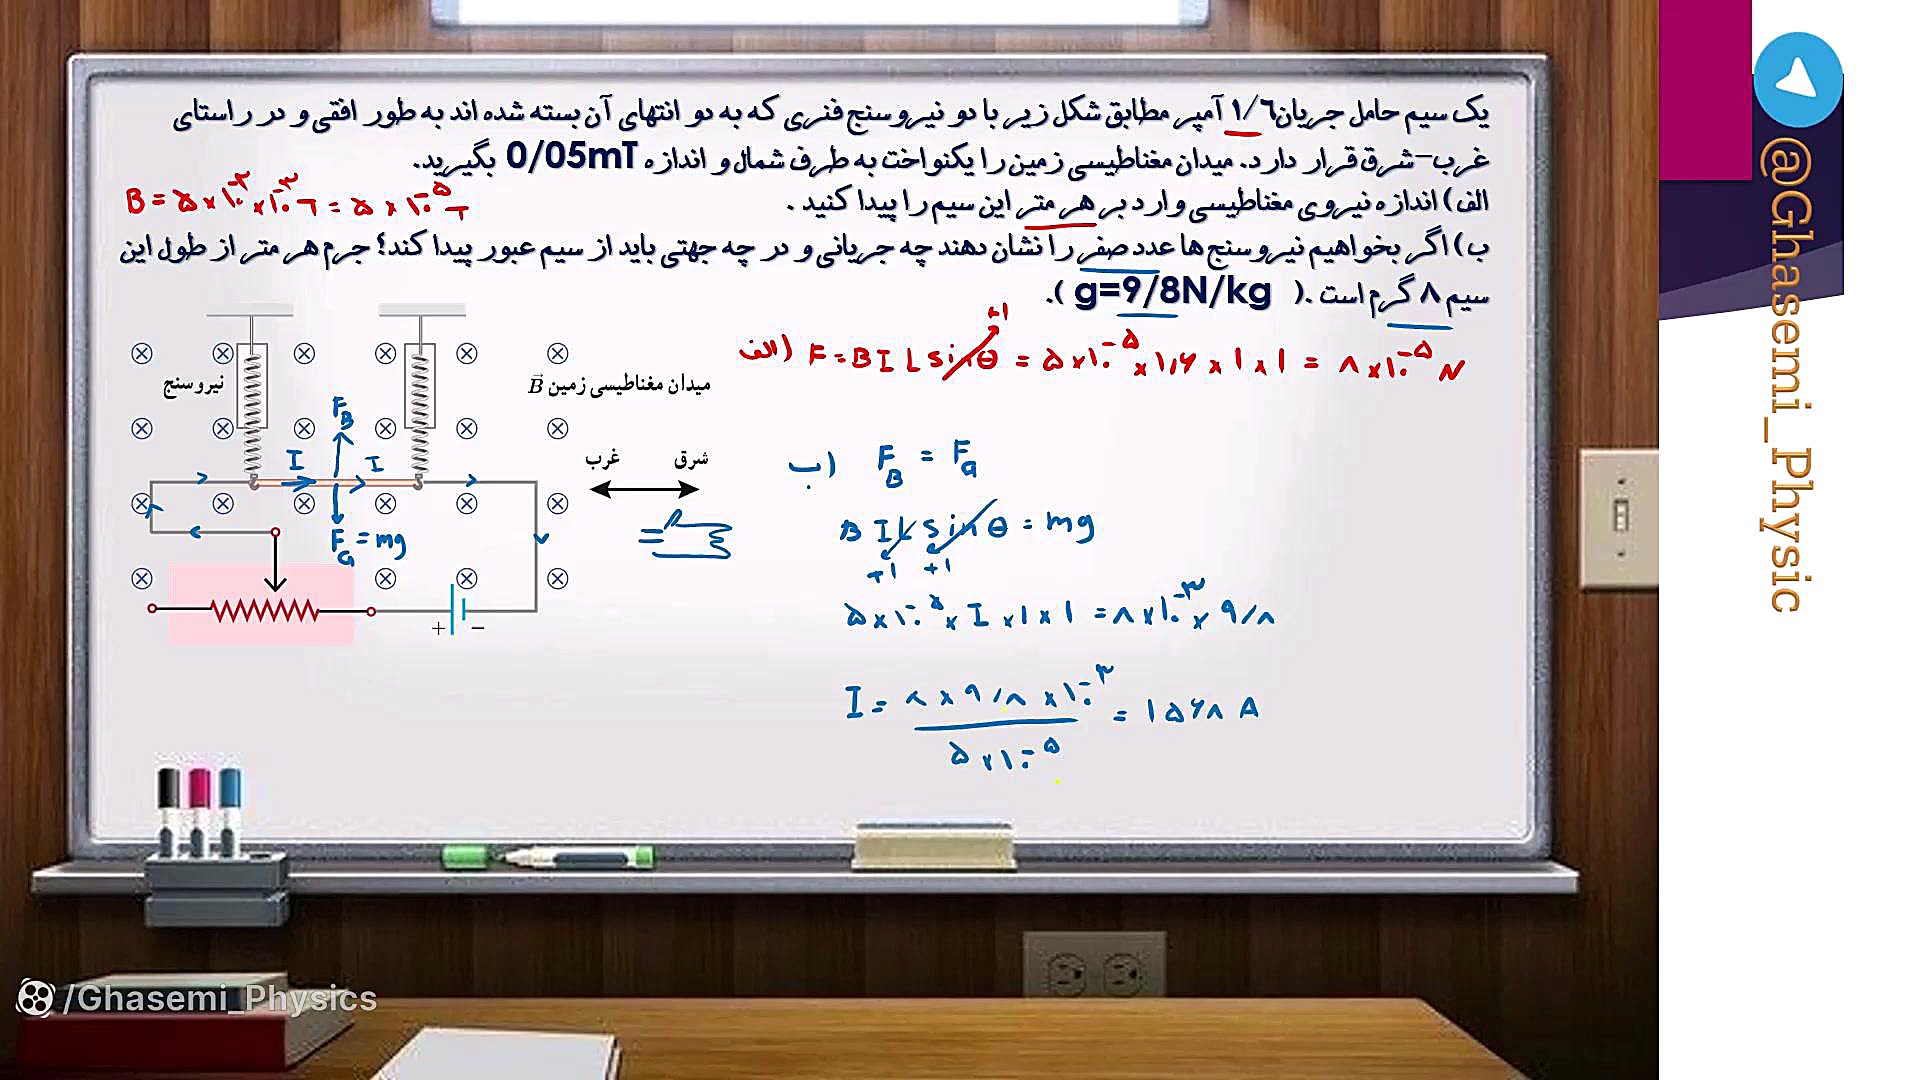 یک سیم حامل جریان ۱/۶ آمپر مطابق شکل زیر با دو نیروسنج فنری که به دو انتهای آن بسته شده اند به طور افقی و در راستای
غرب-شرق قرار دارد. میدان مغناطیسی زمین را یکنواخت به طرف شمال و اندازه 0/05mT بگیرید.
B = ۵ × ۱۰⁻² × ۱۰⁻³ T = ۵ × ۱۰⁻⁵ T
الف) اندازه نیروی مغناطیسی وارد بر هر متر این سیم را پیدا کنید .
ب) اگر بخواهیم نیروسنج ها عدد صفر را نشان دهند چه جریانی و در چه جهتی باید از سیم عبور پیدا کند؟ جرم هر متر از طول این
سیم ۸ گرم است . ( g=9/8N/kg ).
الف) F = B I L sin θ = ۵ × ۱۰⁻⁵ × ۱,۶ × ۱ × ۱ = ۸ × ۱۰⁻⁵ N
+۱
نیروسنج
میدان مغناطیسی زمین B
F_B
I I
غرب شرق
F_G = mg
+ −
ب) F_B = F_G
B I L sin θ = mg
+۱ +۱
۵ × ۱۰⁻⁵ × I × ۱ × ۱ = ۸ × ۱۰⁻³ × ۹/۸
I = ۸ × ۹/۸ × ۱۰⁻³ / ۵ × ۱۰⁻⁵ = ۱۵۶۸ A
/Ghasemi_Physics
@Ghasemi_Physic